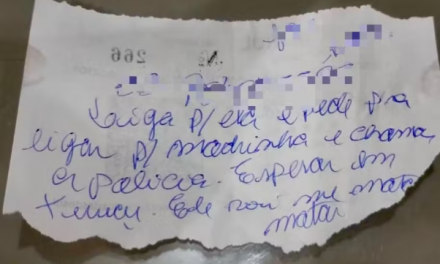 266
Liga p/ ela e pede pra
ligar p/ madrinha e chamar
a polícia. Esperar em
Xerém. Ele vai me matar
matar